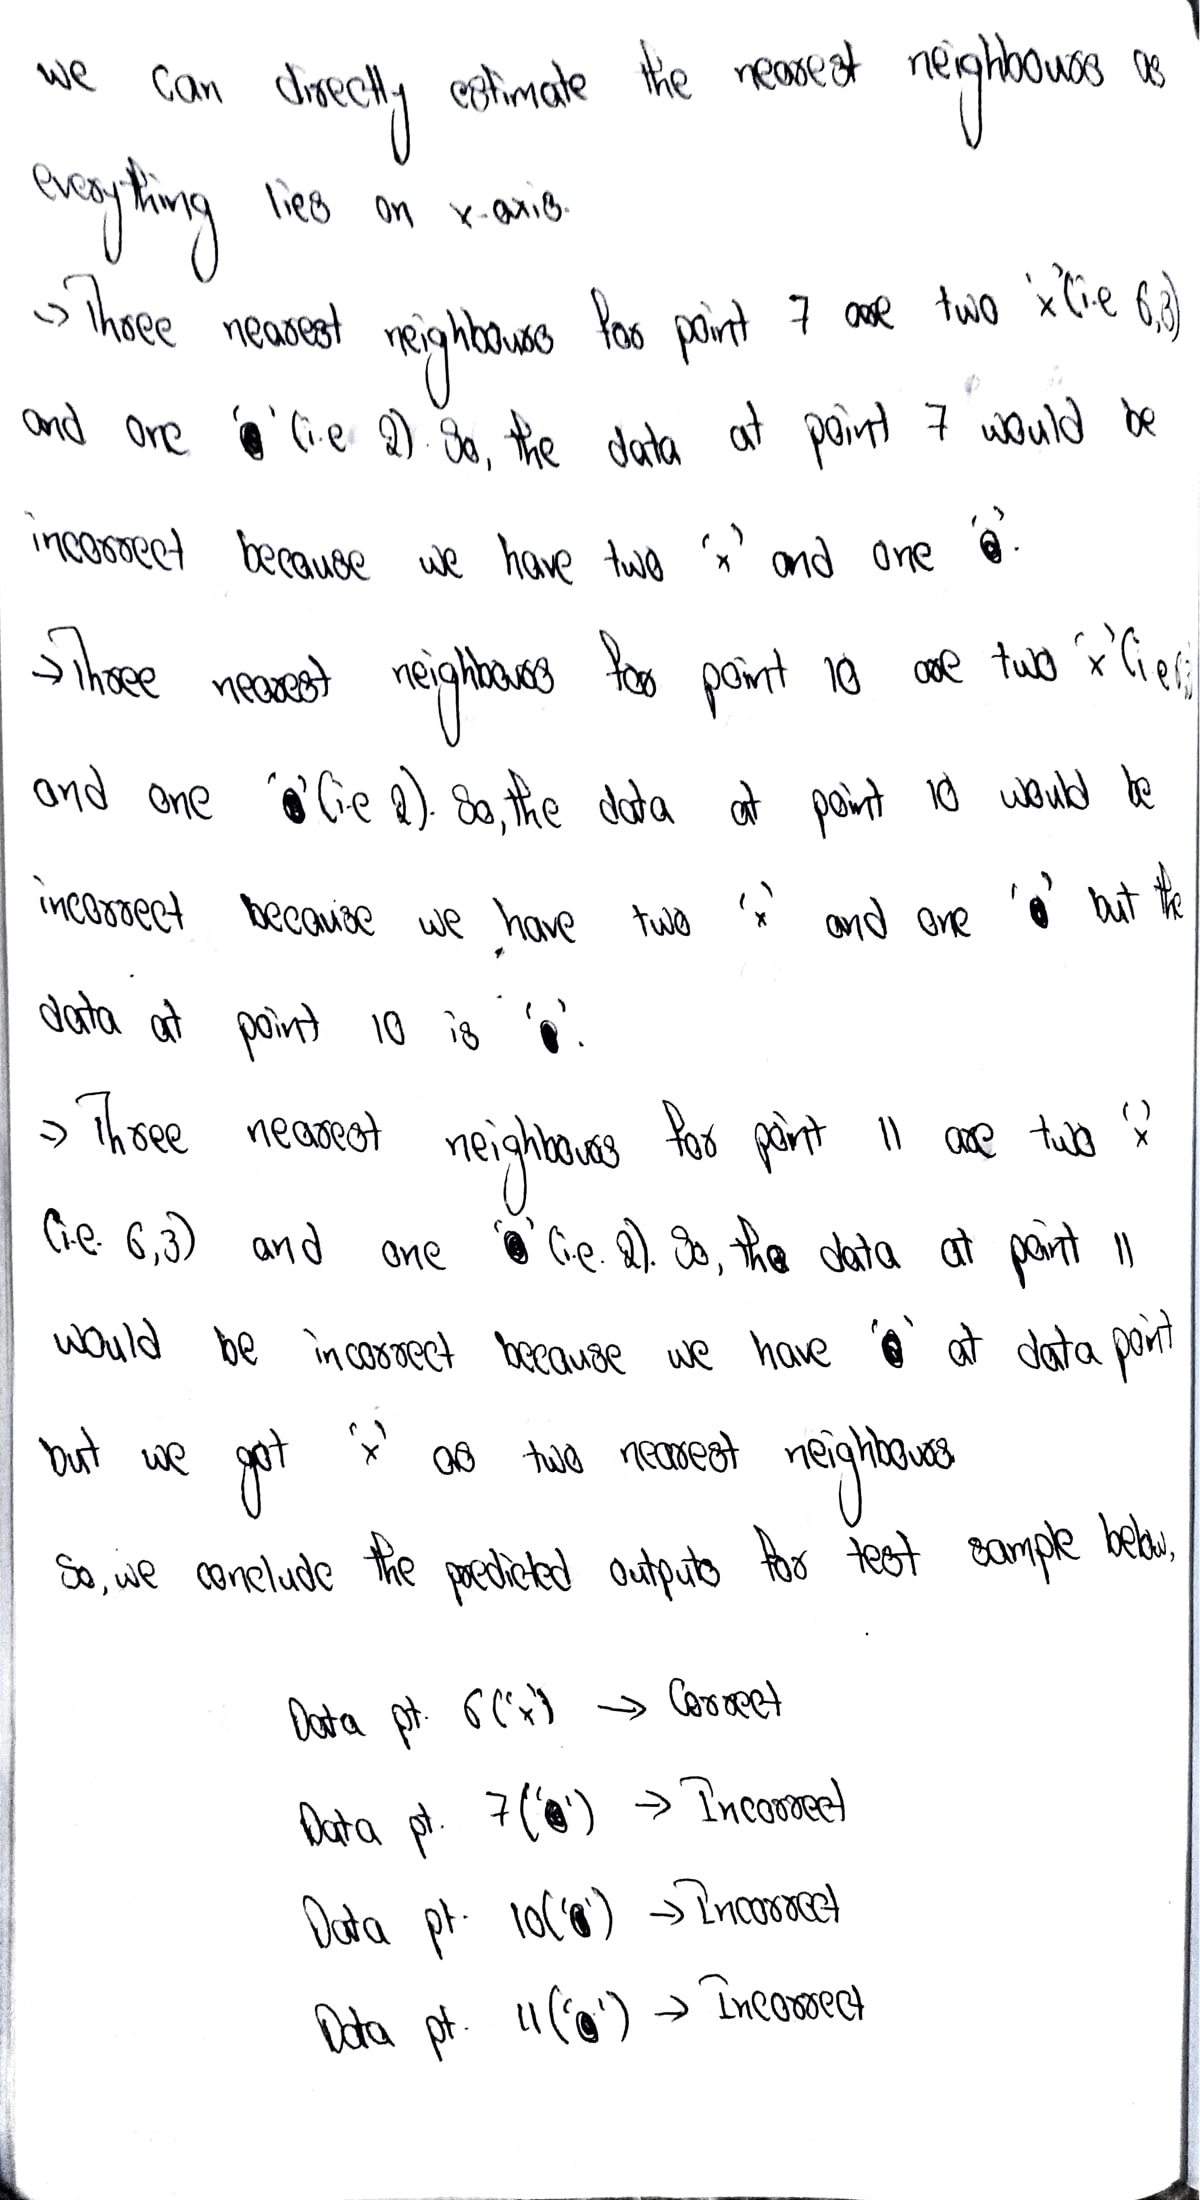 we can directly estimate the nearest neighbours as
everything lies on x-axis.
→ Three nearest neighbours for point 7 are two 'x' (i.e 6,3)
and one 'o' (i.e 2). So, the data at point 7 would be
incorrect because we have two 'x' and one 'o'.
→ Three nearest neighbours for point 10 are two 'x' (i.e 6,
and one 'o' (i.e 2). So, the data at point 10 would be
incorrect because we have two 'x' and one 'o' but the
data at point 10 is 'o'.
→ Three nearest neighbours for point 11 are two 'x'
(i.e. 6,3) and one 'o' (i.e. 2). So, the data at point 11
would be incorrect because we have 'o' at data point
but we got 'x' as two nearest neighbours
So, we conclude the predicted outputs for test sample below,
Data pt. 6('x') → Correct
Data pt. 7('o') → Incorrect
Data pt. 10('o') → Incorrect
Data pt. 11('o') → Incorrect